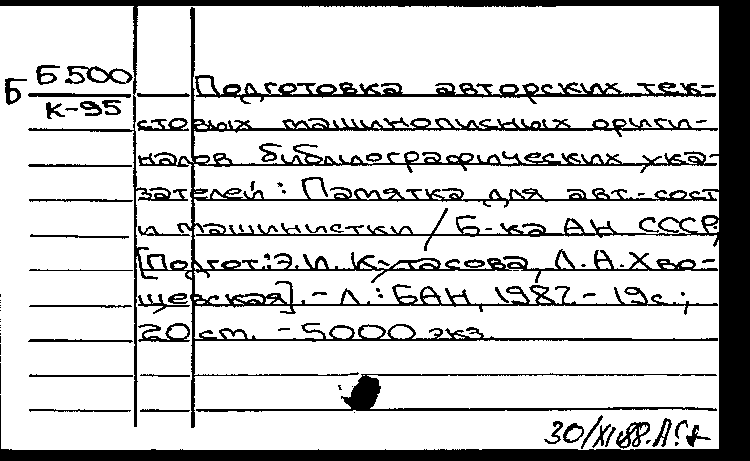 Б Б500
К-95
Подготовка авторских тек-
стовых машинописных ориги-
налов библиографических ука-
зателей: Памятка для авт.-сост
и машинистки / Б-ка АН СССР,
[Подгот.: Э.И. Кутасова, Л.А.Хво-
щевская]. - Л.: БАН, 1987. - 19с.;
20 ст. - 5000 экз.
30/XI 88.